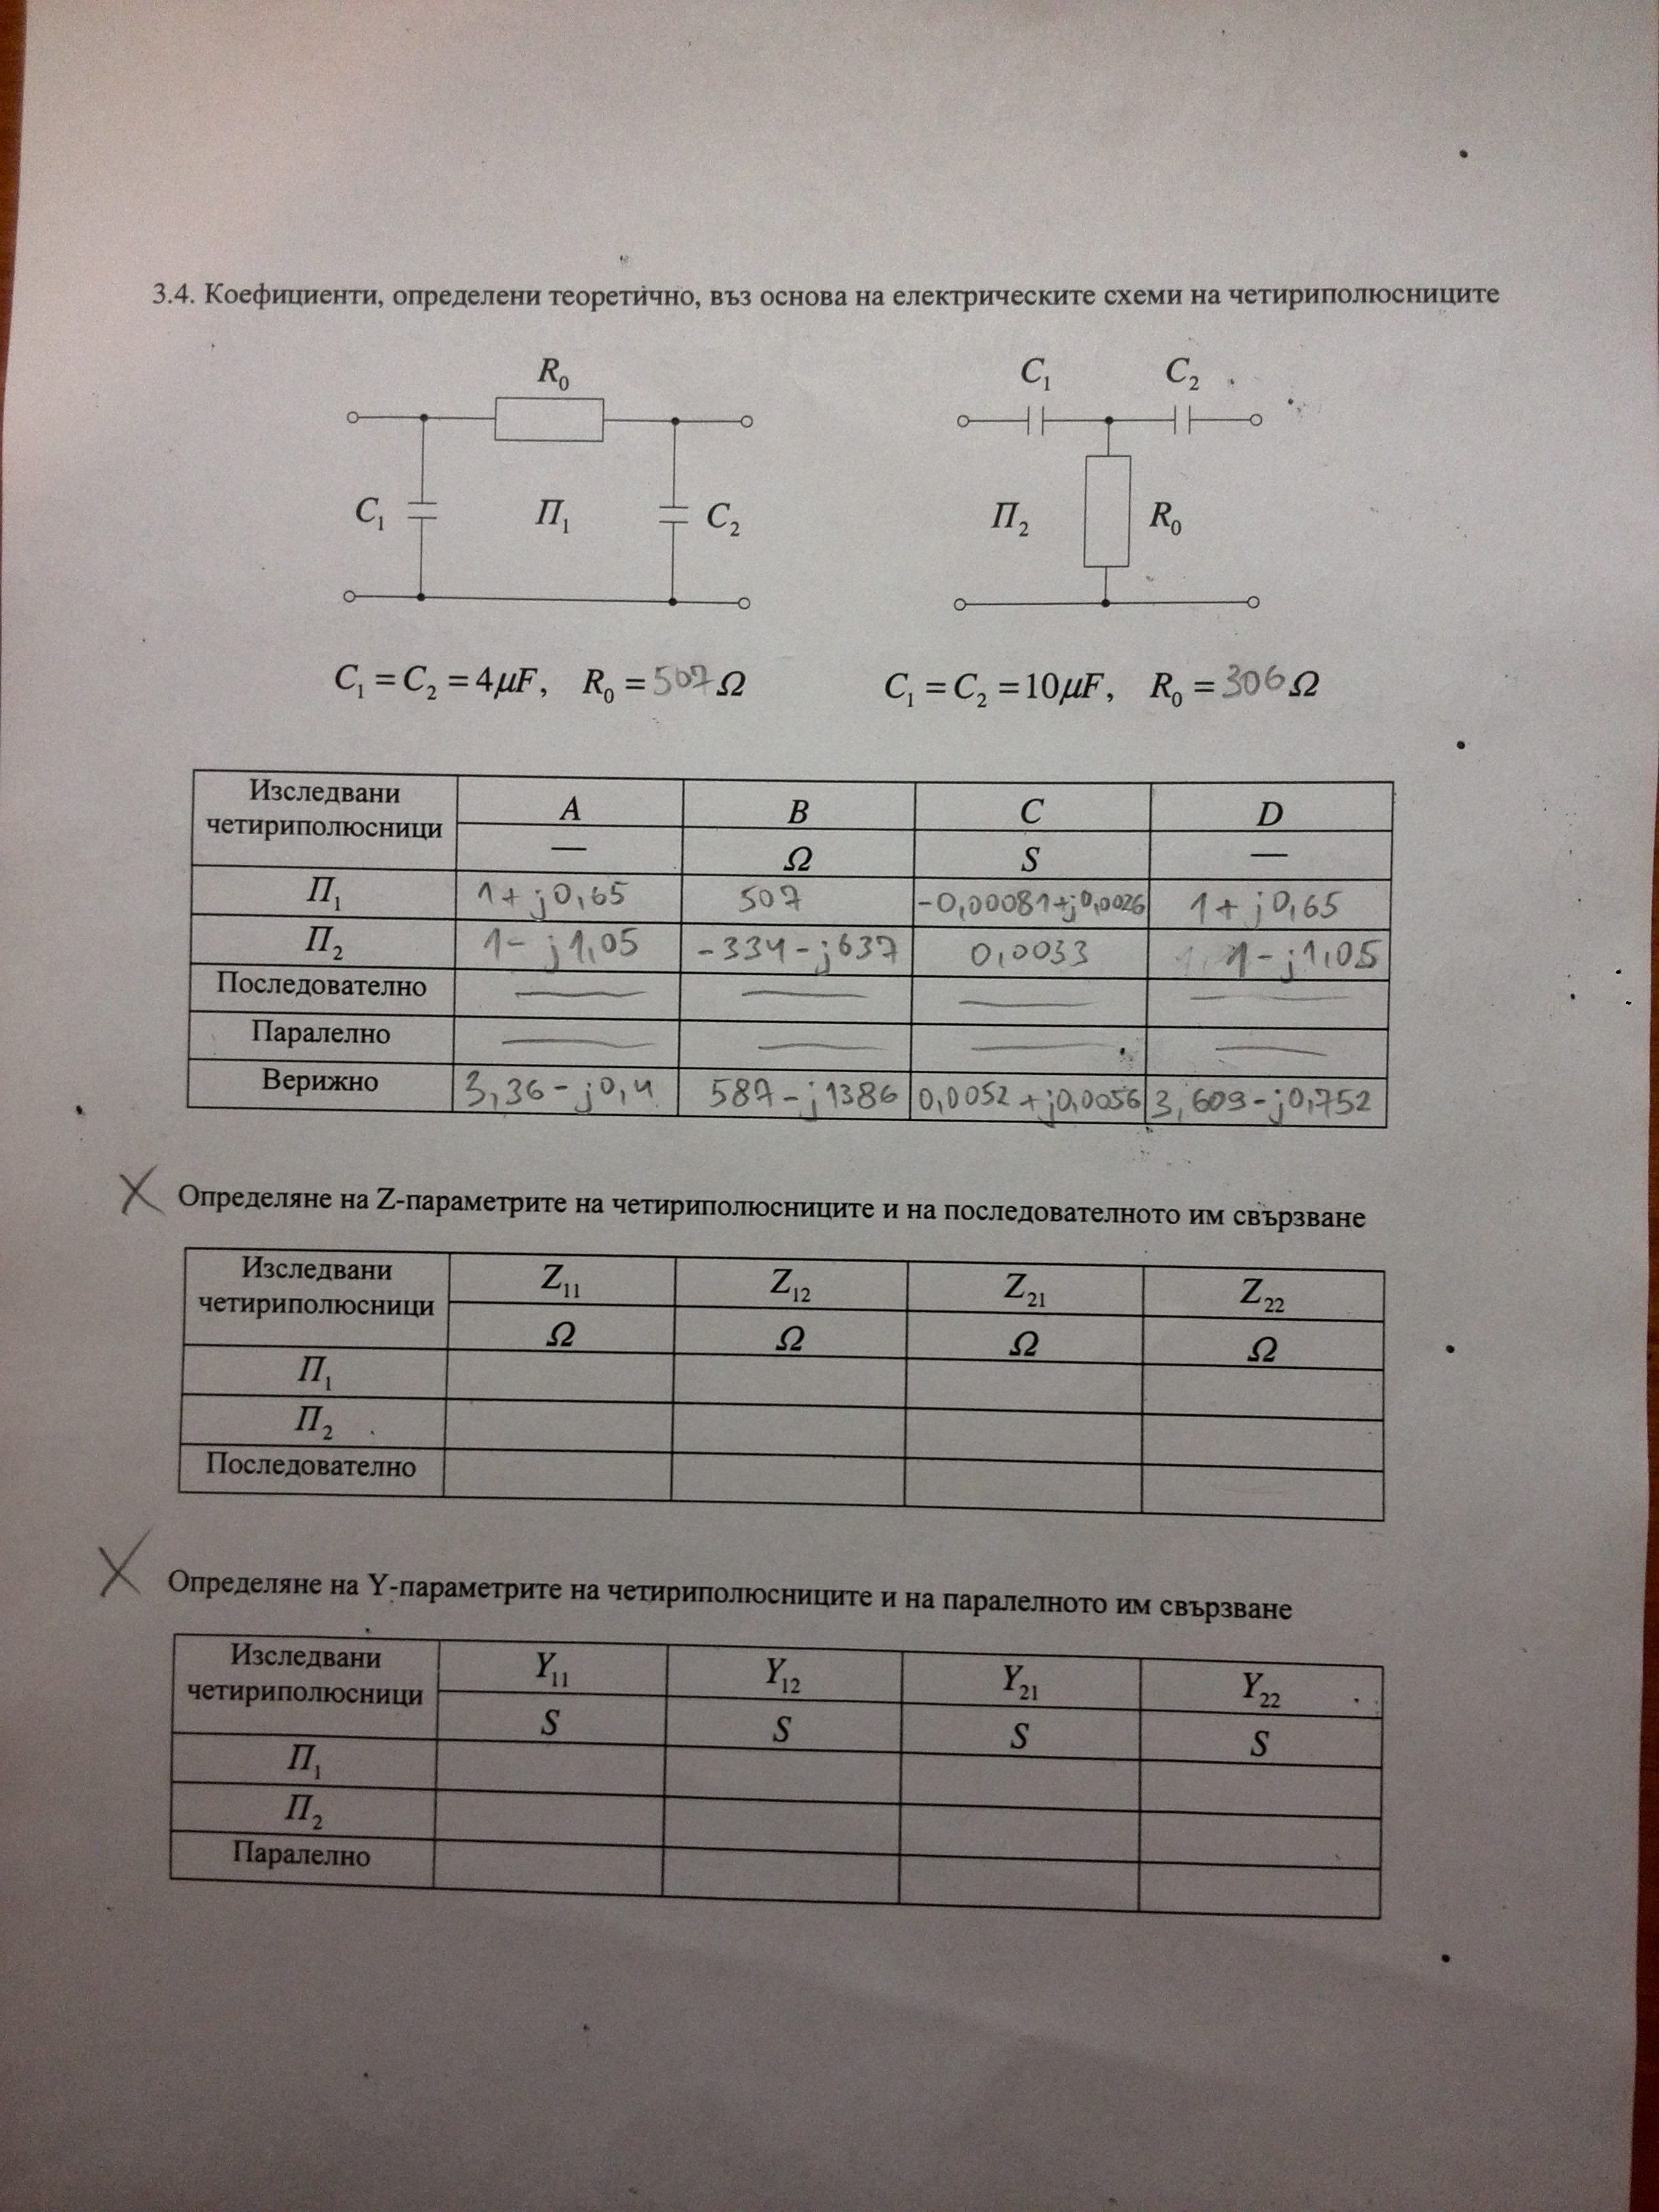 3.4. Коефициенти, определени теоретично, въз основа на електрическите схеми на четириполюсниците
R₀
C₁ C₂
C₁ П₁ C₂
П₂ R₀
C₁ = C₂ = 4μF, R₀ = 507Ω
C₁ = C₂ = 10μF, R₀ = 306Ω
Изследвани четириполюсници A B C D
— Ω S —
П₁ 1+j0,65 507 -0,00081+j0,0026 1+j0,65
П₂ 1-j1,05 -334-j637 0,0033 1-j1,05
Последователно — — — —
Паралелно — — — —
Верижно 3,36-j0,4 587-j1386 0,0052+j0,0056 3,609-j0,752
X Определяне на Z-параметрите на четириполюсниците и на последователното им свързване
Изследвани четириполюсници Z₁₁ Z₁₂ Z₂₁ Z₂₂
Ω Ω Ω Ω
П₁
П₂
Последователно
X Определяне на Y-параметрите на четириполюсниците и на паралелното им свързване
Изследвани четириполюсници Y₁₁ Y₁₂ Y₂₁ Y₂₂
S S S S
П₁
П₂
Паралелно